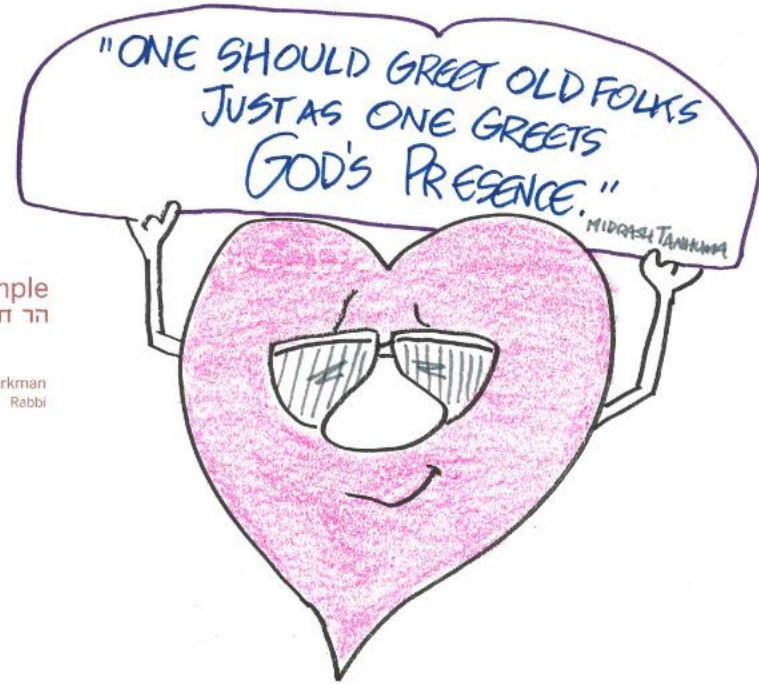 "ONE SHOULD GREET OLD FOLKS
JUST AS ONE GREETS
GOD'S PRESENCE."
MIDRASH TANHUMA
הר
Rabbi